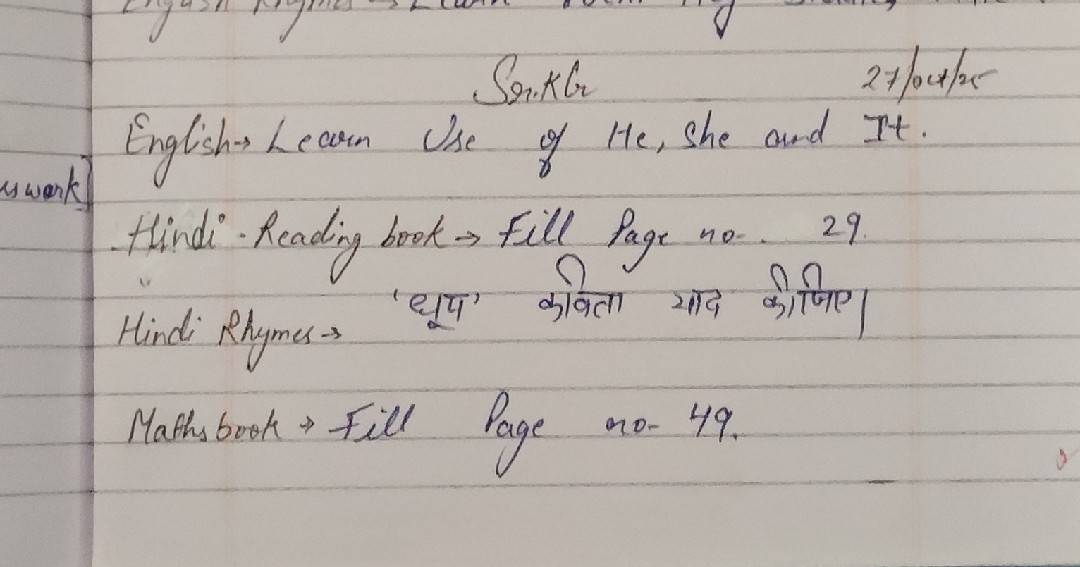 English Rhymes → Learn Poem My
Sr.KG 27/oct/25
English → Learn Use of He, She and It.
s work]
Hindi - Reading book → Fill Page no - 29.
Hindi Rhymes → 'धूप' कविता याद कीजिए।
Maths book → Fill Page no - 49.